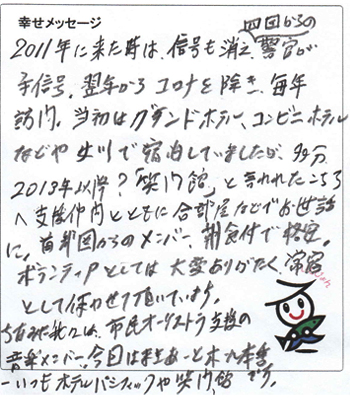 幸せメッセージ
四国からの
2011年に来た時は、信号も消え、警官が
手信号。翌年からコロナを除き、毎年
訪問。当初はグランドホテル、コンビニホテル
などや で宿泊していましたが、多分
2013年以降?「 館」と言われたところ
へ支援仲間とともに合部屋などでお世話
に。首都圏からのメンバー、朝食付で格安。
ボランティアとしては大変ありがたく、常宿
として使わせて頂いています。
は、市民オーケストラ支援の
音楽メンバー、今回は
いつもホテルパシフィックや 館 です。